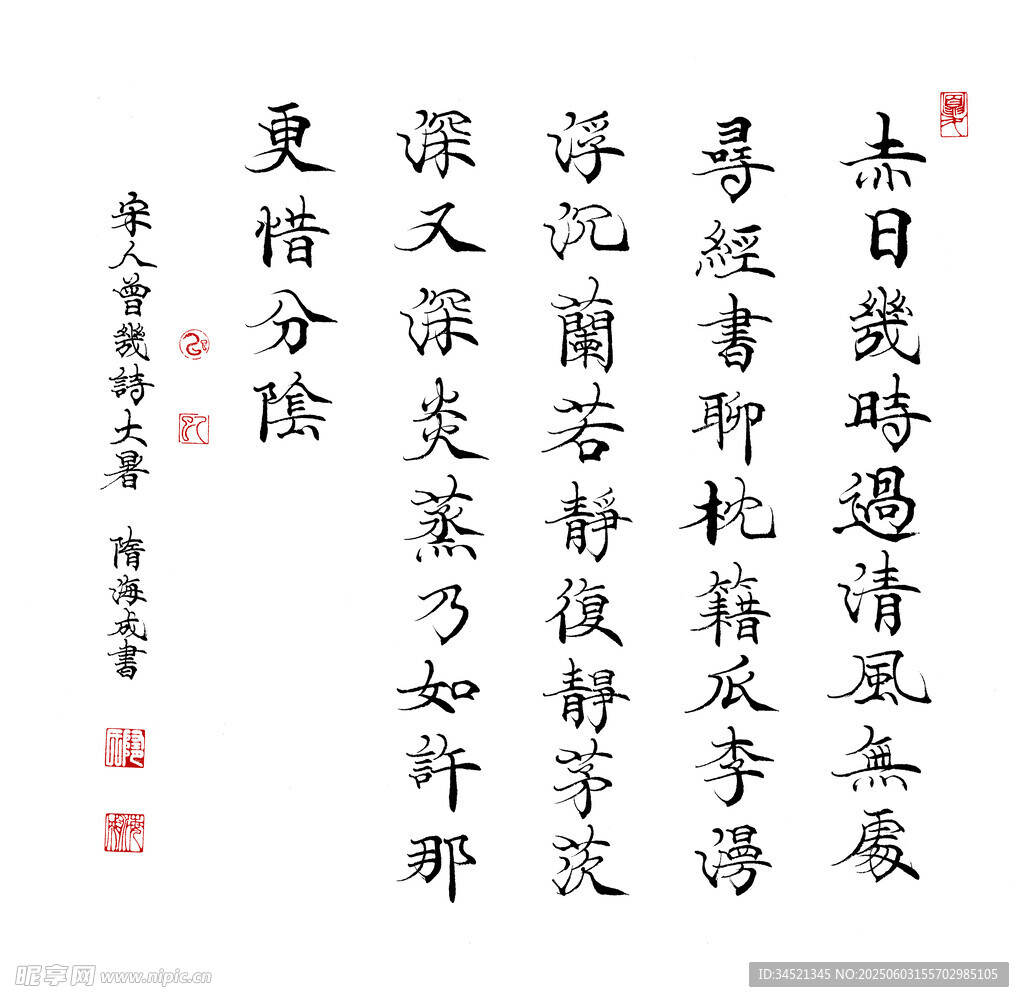 赤日幾時過清風無處
尋經書聊枕籍瓜李漫
浮沉蘭若靜復靜茅茨
深又深炎蒸乃如許那
更惜分陰
宋人曾幾詩大暑 隋海成書
昵享网 www.nipic.cn
ID:34521345 NO:20250603155702985105